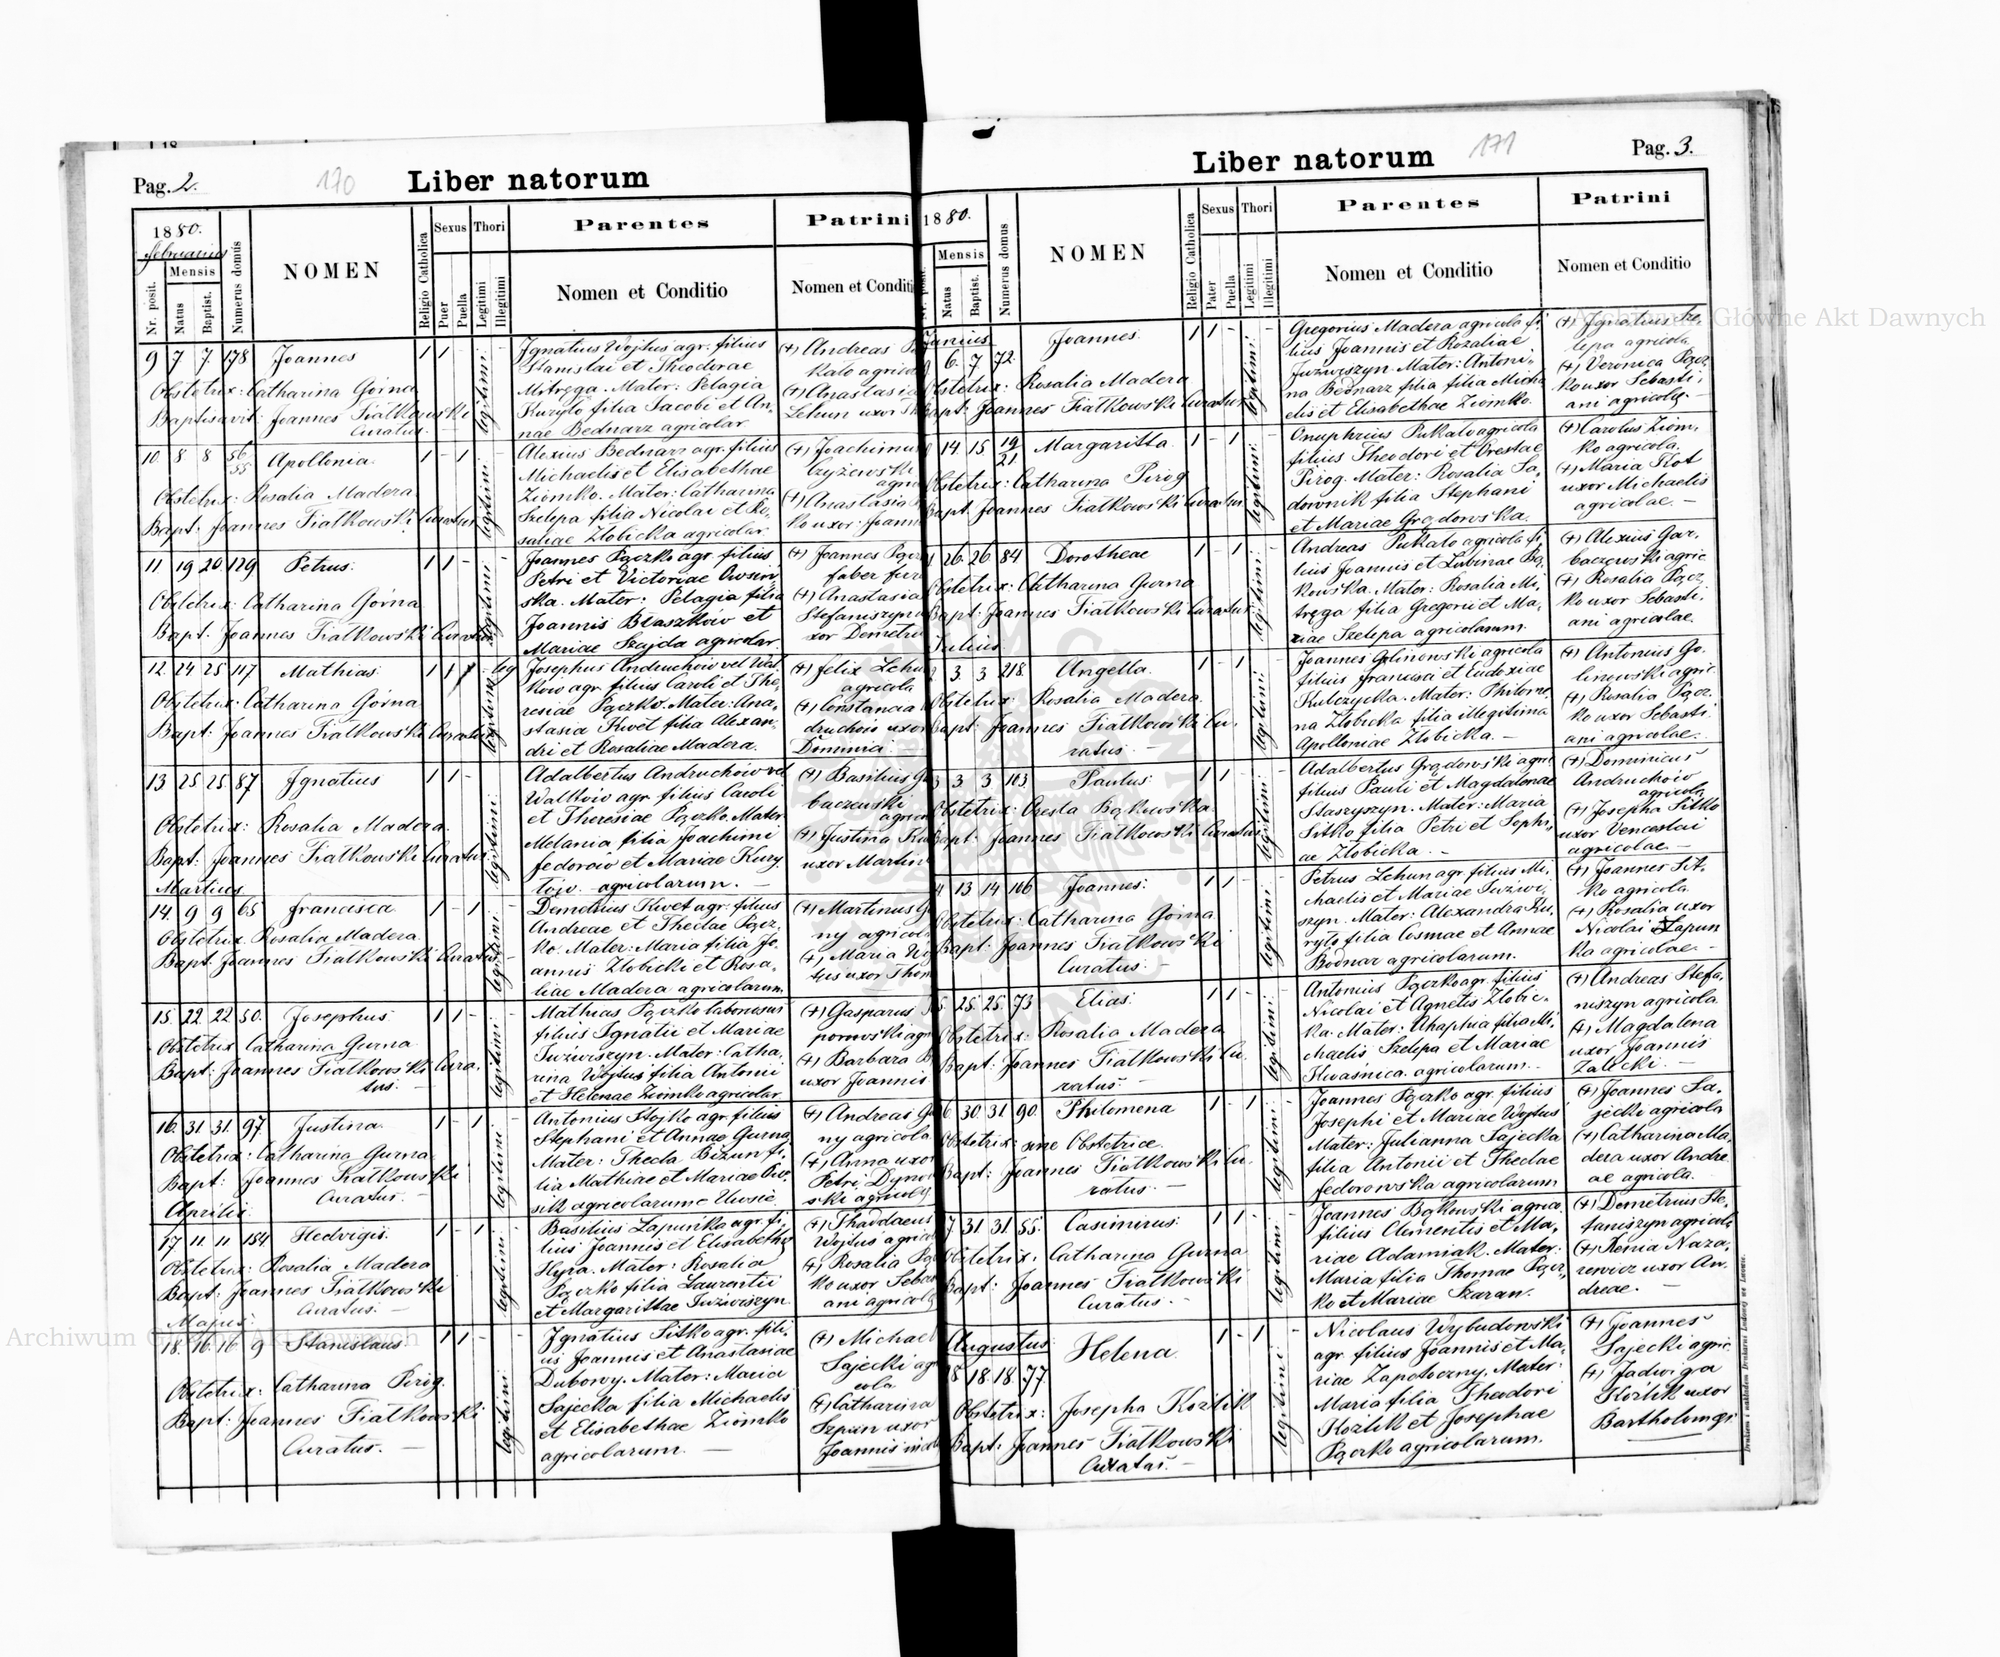 Pag. 2.
170
Liber natorum
1880.
februarius
Mensis
Nr. posit.
Natus
Baptist.
Numerus domus
NOMEN
Religio Catholica
Sexus
Puer
Puella
Thori
Legitimi
Illegitimi
Parentes
Nomen et Conditio
Patrini
Nomen et Conditi
9 7 7 178 Joannes 1 1 -
Obstetrix: Catharina Górna
Baptisavit: Joannes Fiałkowski
Curatus.
legitimi
Ignatius Wojtus agr. filius
Stanislai et Theodorae
Mitręga. Mater: Pelagia
Kuryło filia Jacobi et An-
nae Bednarz agricolar.
(+) Andreas
kalo agrico
(+) Anastasia
Lehun uxor
10 8 8 56/55 Apollonia. 1 - 1
Obstetrix: Rosalia Madera
Bapt: Joannes Fiałkowski Curatus
legitimi
Alexius Bednarz agr. filius
Michaelis et Elisabethae
Ziomko. Mater: Catharina
Szelepa filia Nicolai et Ro-
saliae Złobicka agricolar.
(+) Joachimus
czyżewski
agri
(+) Anastasia
ko uxor Joann
11 19 20 129 Petrus. 1 1 -
Obstetrix: Catharina Górna
Bapt. Joannes Fiałkowski Curatus
legitimi
Joannes Pączko agr. filius
Petri et Victoriae Owsiń
ska. Mater: Pelagia filia
Joannis Błaszków et
Mariae Szajda agricolar.
(+) Joannes Pącz
faber fer
(+) Anastasia
Stefaniszyn
xor Demetri
12. 24 25 117 Mathias 1 1 - leg
Obstetrix: Catharina Górna
Bapt: Joannes Fiałkowski Curatus
legitimi
Josephus Andruchów vel Wal-
ków agr. filius Caroli et The-
resiae Pączko. Mater: Ana-
stasia Kwot filia Alexan-
dri et Rosaliae Madera.
(+) Felix Lehu
agricola
(+) Constancia
druchów uxor
Dominici
13 25 25. 87 Ignatius 1 1 -
Obstetrix: Rosalia Madera.
Bapt: Joannes Fiałkowski Curatus.
legitimi
Adalbertus Andruchów vel
Walków agr. filius Caroli
et Theresiae Pączko. Mater
Melania filia Joachimi
Fedorów et Mariae Kury
agricolarum. -
(+) Basilius Ga
baczewski
agrico
(+) Justina
uxor Martin
Martius
14. 9 9 65 Francisca 1 - 1
Obstetrix. Rosalia Madera
Bapt. Joannes Fiałkowski Curatus
legitimi
Demetrius Kwot agr. filius
Andreae et Theclae Pącz-
ko. Mater: Maria filia Jo-
annis Złobicki et Rosa-
liae Madera agricolarum.
(+) Martinus G
ny agricol
(+) Maria Wo
tus uxor Thom
15. 22. 22 50. Josephus 1 1 -
Obstetrix Catharina Gurna
Bapt: Joannes Fiałkowski Cura-
tus. -
legitimi
Mathias Pączko laboriosus
filius Ignatii et Mariae
Juźwiszyn. Mater: Catha-
rina Wojtus filia Antonii
et Helenae Ziomko agricolar
(+) Gasparus
porowski agr
(+) Barbara
uxor Joannis
16. 31 31. 97. Justina. 1 - 1
Obstetrix: Catharina Gurna
Bapt: Joannes Fiałkowski
Curatus. -
legitimi
Antonius Hojko agr. filius
Stephani et Annae Gurna
Mater: Thecla Biżun fi-
lia Mathiae et Mariae
agricolarum
(+) Andreas G
ny agricola
(+) Anna uxor
Petri Dymo
ski agricola
Aprilis
17 11. 11 184. Hedvigis. 1 - 1
Obstetrix: Rosalia Madera
Bapt: Joannes Fiałkowski
Curatus. -
legitimi
Basilius Łapuńka agr. fi-
lius Joannis et Elisabethae
Hyra. Mater: Rosalia
Pączko filia Laurentii
et Margarithae Juźwiszyn.
(+) Thaddaeus
Wojtus agrico
(+) Rosalia Pą
ko uxor Seba
ani agricola
Majus.
18. 16. 16 9 Stanislaus. 1 1 -
Obstetrix: Catharina Pirog.
Bapt: Joannes Fiałkowski
Curatus. -
legitimi
Ignatius Sitko agr. fili-
us Joannis et Anastasiae
Dubowy. Mater: Maria
Sajecka filia Michaelis
et Elisabethae Ziomko
agricolarum. -
(+) Michael
Sajecki agr
cola
(+) Catharina
uxor
Joannis
Liber natorum
171
Pag. 3.
1880.
Mensis
Natus
Baptist.
Numerus domus
NOMEN
Religio Catholica
Sexus
Pater
Puella
Thori
Legitimi
Illegitimi
Parentes
Nomen et Conditio
Patrini
Nomen et Conditio
Junius
6. 7 72. Joannes. 1 1 - -
Obstetrix: Rosalia Madera
Bapt: Joannes Fiałkowski Curatus
legitimi
Gregorius Madera agricola fi-
lius Joannis et Rozaliae
Juźwiszyn. Mater: Antoni-
na Bednarz filia filia Micha
elis et Elisabethae Ziomko.
(+) Ignatius Sze-
lepa agricola
(+) Veronica Pącz-
ko uxor Sebasti-
ani agricolae. -
14. 15 19/21. Margaritta. 1 - 1 -
Obstetrix: Catharina Pirog
Bapt. Joannes Fiałkowski Curatus
legitimi
Onuphrius Pukało agricola
filius Theodori et Orestae
Pirog. Mater: Rosalia Sa-
downik filia Stephani
et Mariae Grądowska.
(+) Carolus Ziom-
ko agricola
(+) Maria Kot
uxor Michaelis
agricolae. -
26. 26 84 Dorotheae 1 - 1 -
Obstetrix: Catharina Gurna
Bapt: Joannes Fiałkowski Curatus
legitimi
Andreas Pukało agricola fi-
lius Joannis et Lubinae Bą-
kowska. Mater: Rosalia Mi-
tręga filia Gregorii et Ma-
riae Szelepa agricolarum.
(+) Alexius Gar-
baczewski agric
(+) Rosalia Pącz-
ko uxor Sebasti-
ani agricolae.
Julius
3. 3 218. Angella. 1 - 1 -
Obstetrix: Rosalia Madera.
Bapt: Joannes Fiałkowski Cu-
ratus. -
legitimi
Joannes Golinowski agricola
filius Francisci et Eudoxiae
Kulczycka. Mater: Philome-
na Złobicka filia illegitima
Apolloniae Złobicka. -
(+) Antonius Go-
linowski agric.
(+) Rosalia Pącz-
ko uxor Sebasti-
ani agricolae.
3 3 103. Paulus. 1 1 -
Obstetrix: Oresta Bąkowska.
Bapt: Joannes Fiałkowski Curatus
legitimi
Adalbertus Grądowski agri
filius Pauli et Magdalenae
Staszyszyn. Mater: Maria
Sitko filia Petri et Sophi-
ae Złobicka. -
(+) Dominicus
Andruchów
agricola
(+) Josepha Sitko
uxor Venceslai
agricolae. -
13 14 106 Joannes. 1 1 -
Obstetrix: Catharina Górna
Bapt: Joannes Fiałkowski
Curatus. -
legitimi
Petrus Lehun agr. filius Mi-
chaelis et Mariae Juźwi-
szyn. Mater: Alexandra Ku-
ryło filia Cosmae et Annae
Bodnar agricolarum.
(+) Joannes Sit-
ko agricola
(+) Rosalia uxor
Nicolai Łapun
ka agricolae. -
25. 25. 73 Elias. 1 1 -
Obstetrix: Rosalia Madera
Bapt: Joannes Fiałkowski Cu-
ratus. -
legitimi
Antonius Pączko agr. filius
Nicolai et Agnetis Złobic-
ka. Mater: Ahaphia filia Mi-
chaelis Szelepa et Mariae
Kwaśnica. agricolarum. -
(+) Andreas Stefa-
niszyn agricola
(+) Magdalena
uxor Joannis
Zalecki. -
30. 31 90. Philomena 1 - 1 -
Obstetrix: sine Obstetrice.
Bapt: Joannes Fiałkowski Cu-
ratus. -
legitimi
Joannes Pączko agr. filius
Josephi et Mariae Wojtus
Mater: Julianna Sajecka
filia Antonii et Theclae
Fedorowska agricolarum
(+) Joannes Sa-
jecki agricola
(+) Catharina Ma-
dera uxor Andre
ae agricola.
7. 31. 31. 55. Casimirus. 1 1 -
Obstetrix: Catharina Gurna
Bapt: Joannes Fiałkowski
Curatus. -
legitimi
Joannes Bąkowski agrico
filius Clementis et Ma-
riae Adamiak. Mater:
Maria filia Thomae Pącz-
ko et Mariae Szaran.
(+) Demetrius Ste-
faniszyn agricola
(+) Xenia Naza-
rewicz uxor An-
dreae. -
Augustus.
18. 18. 77 Helena 1 - 1 -
Obstetrix: Josepha Kożlik
Bapt: Joannes Fiałkowski
Curatus. -
legitimi
Nicolaus Wybudowski
agr. filius Joannis et Ma-
riae Zapotoczny. Mater:
Maria filia Theodori
Kożlik et Josephae
Pączko agricolarum.
(+) Joannes
Sajecki agric.
(+) Jadwiga
Kożlik uxor
Bartholomaei
Archiwum Główne Akt Dawnych
Archiwum Główne Akt Dawnych